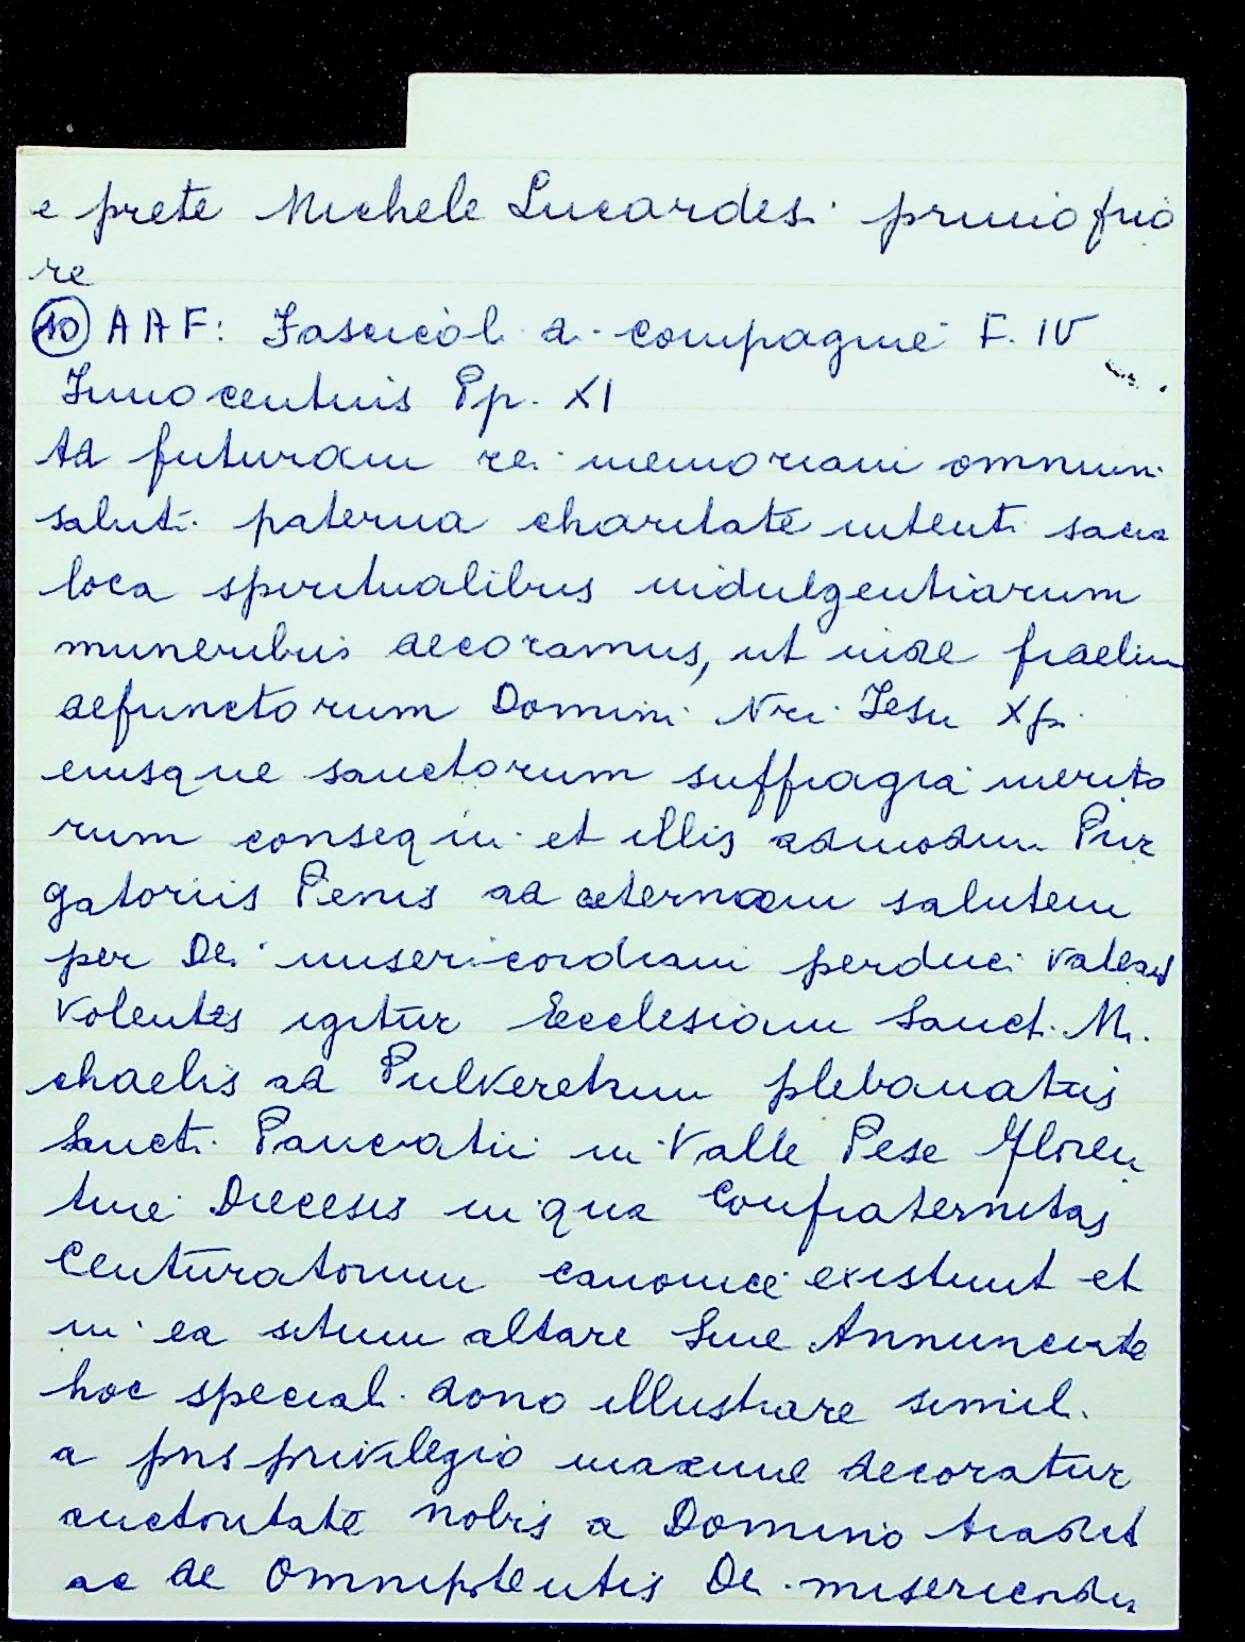 e prete Michele Lucardesi primo prio
re
10 AAF: Fascicoli di compagnie F. IV
Innocentius Pp. XI
Ad futuram rei memoriam omnium
saluti paterna charitate intenti sacra
loca spiritualibus indulgentiarum
muneribus decoramus, ut inde fidelium
defunctorum Domini Nri Iesu Xpi
eiusque sanctorum suffragia merito
rum consequi et illis admodum Pur
gatoriis Penis ad aeternam salutem
per Dei misericordiam perduci valeant
Volentes igitur Ecclesiam Sancti Mi
chaelis ad Pulveretum plebanatus
Sancti Pancratii in Valle Pese Floren
tine Diecesis in qua Confraternitas
Centuratorum canonice existunt et
in ea situm altare Sme Annunciate
hoc speciali dono illustrare simili
a pns privilegio maxime decoratur
auctoritate nobis a Domino tradit
ac de Omnipotentis Dei misericordia